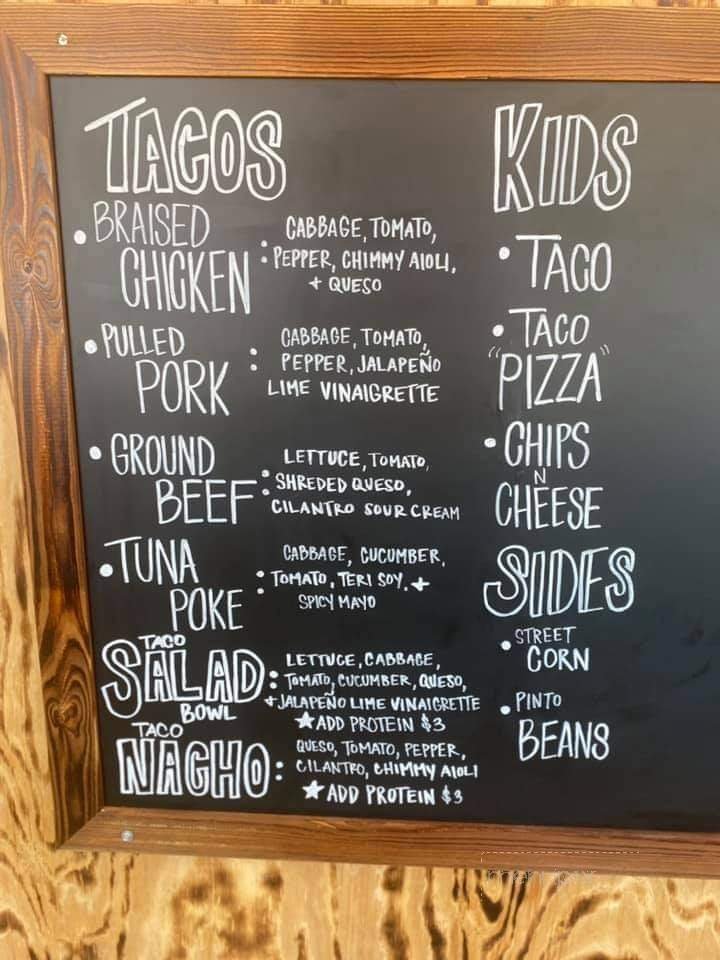 TACOS
• BRAISED
CHICKEN
: CABBAGE, TOMATO,
PEPPER, CHIMMY AIOLI,
+ QUESO
• PULLED
PORK
: CABBAGE, TOMATO,
PEPPER, JALAPEÑO
LIME VINAIGRETTE
• GROUND
BEEF
: LETTUCE, TOMATO,
SHREDED QUESO,
CILANTRO SOUR CREAM
• TUNA
POKE
: CABBAGE, CUCUMBER,
TOMATO, TERI SOY, +
SPICY MAYO
TACO
SALAD
BOWL
: LETTUCE, CABBAGE,
TOMATO, CUCUMBER, QUESO,
+ JALAPEÑO LIME VINAIGRETTE
★ ADD PROTEIN $3
TACO
NACHO
: QUESO, TOMATO, PEPPER,
CILANTRO, CHIMMY AIOLI
★ ADD PROTEIN $3
KIDS
• TACO
• TACO
"PIZZA"
• CHIPS
N
CHEESE
SIDES
• STREET
CORN
• PINTO
BEANS